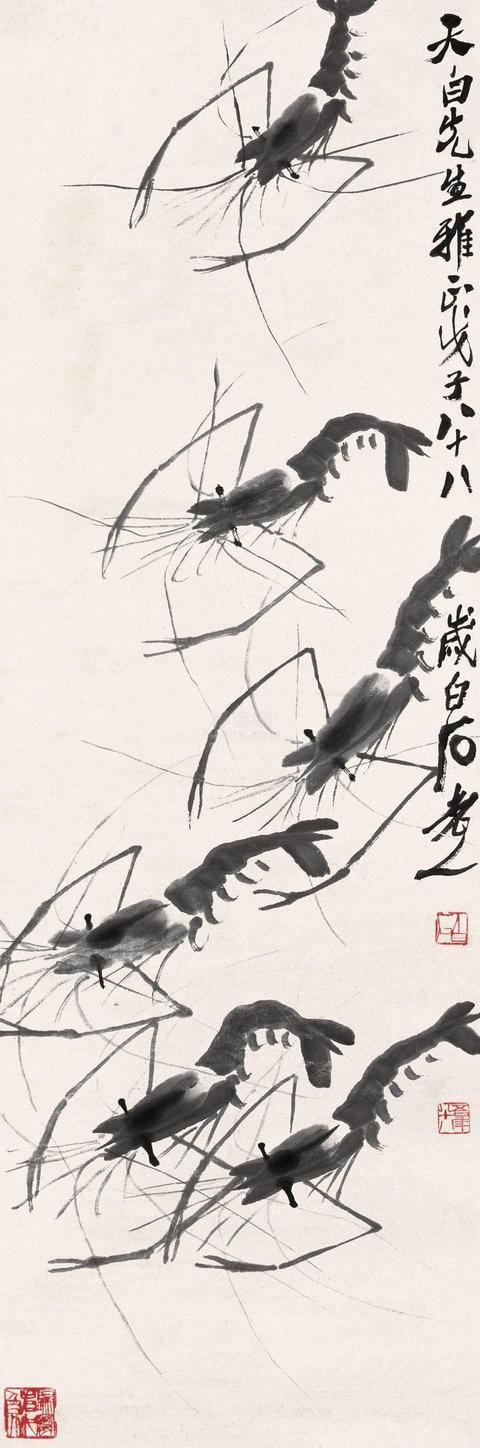 天白先生雅正戊子八十八
歲白石老人
白石